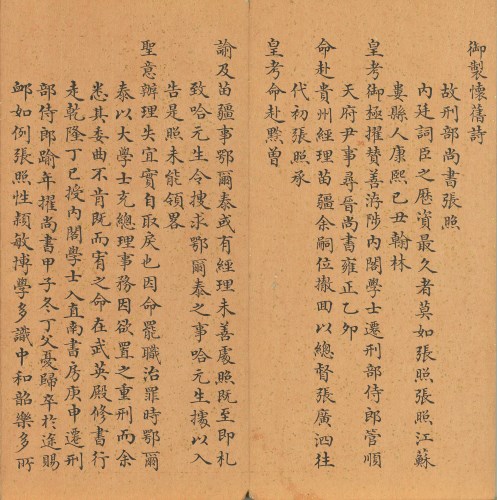 御製懷舊詩
故刑部尚書張照
內廷詞臣之歷資最久者莫如張照張照江蘇
婁縣人康熙己丑翰林
皇考御極擢贊善洊陟內閣學士遷刑部侍郎管順
天府尹事尋晉尚書雍正乙夘
命赴貴州經理苗疆余嗣位撤回以總督張廣泗往
代初張照承
皇考命赴黔曾
諭及苗疆事鄂爾泰或有經理未善處照既至即札
致哈元生令搜求鄂爾泰之事哈元生據以入
告是照未能領畧
聖意辦理失宜實自取戾也因命罷職治罪時鄂爾
泰以大學士充總理事務因欲置之重刑而余
悉其委曲不肯既而宥之命在武英殿修書行
走乾隆丁巳授內閣學士入直南書房庚申遷刑
部侍郎踰年擢尚書甲子冬丁父憂歸卒於途賜
卹如例張照性穎敏博學多識中和韶樂多所